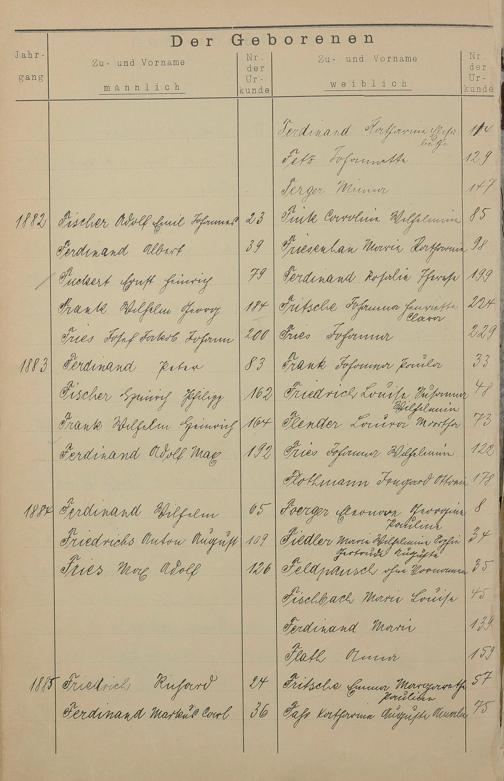 Der Geborenen
Jahr-
gang
Zu- und Vorname
männlich
Nr.
der
Ur-
kunde
Zu- und Vorname
weiblich
Nr.
der
Ur-
kunde
Ferdinand Katharina
Fetz Johannette 129
Minna 147
1882 Fischer Adolf Emil Johannes 23 Fink Carolina Wilhelmin 85
Ferdinand Albert 39 Marie Katharina 98
Ernst Heinrich 79 Ferdinand Rosalie Therese 199
Frank Wilhelm Georg 184 Fritsche Johanna Henriette 224
Clara
Fries Josef Jakob Johann 200 Fries Johanna 229
1883 Ferdinand Peter 83 Frank Johanna Paula 33
Fischer Heinrich Philipp 162 Friedrich Louise Susanna 48
Wilhelmin
Frank Wilhelm Heinrich 164 Flender Laura Martha 73
Ferdinand Adolf Max 192 Fries Johanna Wilhelmin 122
Flothmann Irmgard 178
1884 Ferdinand Wilhelm 65 Eleonore Georgine 8
Pauline
Friedrichs Anton August 109 Fiedler Marie Wilhelmin Sophie 34
Gertrude Auguste
Fries Max Adolf 126 Feldpausch ohne Vornamen 35
Fischbach Marie Louise 45
Ferdinand Marie 139
Flath Anna 159
1885 Friedrich Richard 24 Fritsche Emma Margarethe 57
Pauline
Ferdinand Markus Carl 36 Katharina Auguste Amalie 75